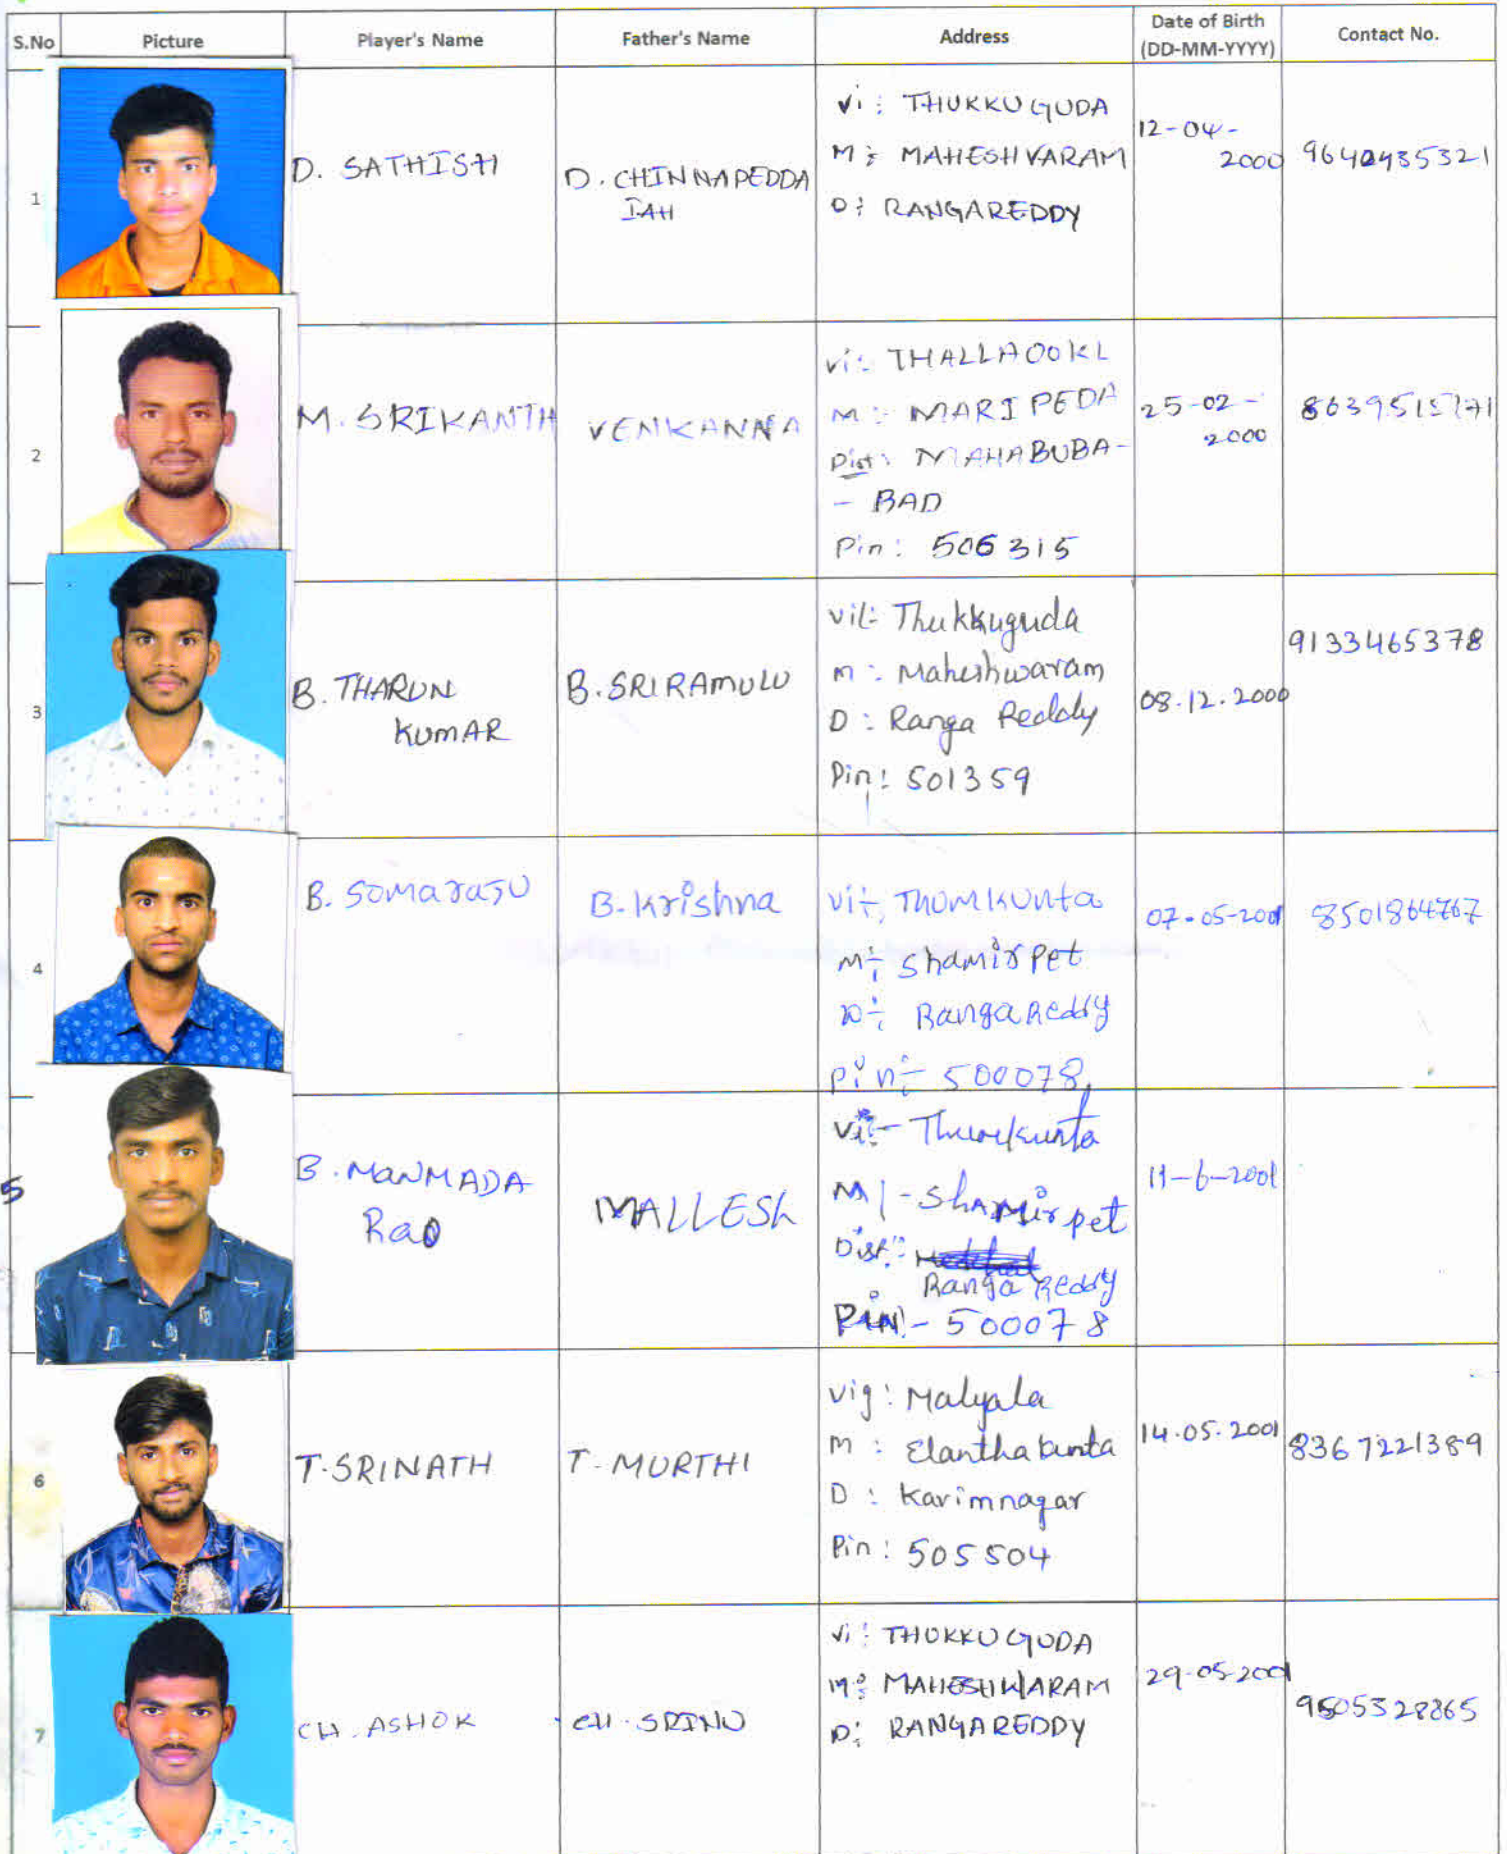 S.No Picture Player's Name Father's Name Address Date of Birth Contact No.
(DD-MM-YYYY)
1
D. SATHISH
D. CHINNAPEDDA
IAH
Vi: THUKKUGUDA
M: MAHESHVARAM
D: RANGAREDDY
12-04-
2000
9640435321
2
M. SRIKANTH
VENKANNA
Vi:
M: MARIPEDA
Dist: MAHABUBA-
- BAD
Pin: 506315
25-02-
2000
3
B. THARUN
KUMAR
B. SRIRAMULU
Vil: Thukkuguda
m: Maheshwaram
D: Ranga Reddy
Pin: 501359
08.12.2000
9133465378
4
B. Somaraju
B. Krishna
Vi:, Thumkunta
M: Shamirpet
D: Ranga Reddy
Pin: 500078
07-05-2001
8501864767
5
B. MaNMADA
Rao
MALLESh
Vi:- Thumkunta
M/- Shamirpet
Dist:
Ranga Reddy
PIN:- 500078
11-6-2001
6
T. SRINATH
T. MURTHI
Vig: Malyala
M: Elanthakunta
D: Karimnagar
Pin: 505504
14.05.2001
8367221389
7
CH. ASHOK
CH. SRINU
Vi: THUKKUGUDA
M: MAHESHWARAM
D: RANGAREDDY
29-05-2001
9505328865